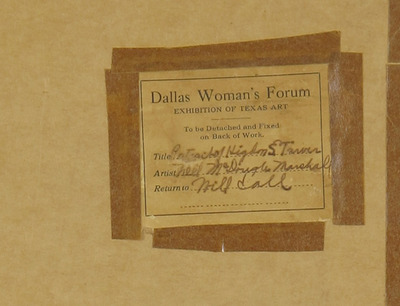 Dallas Woman's Forum
EXHIBITION OF TEXAS ART
To be Detached and Fixed
on Back of Work.
Title Portrait of
Artist McDougle Marshall
Return to: Will Call